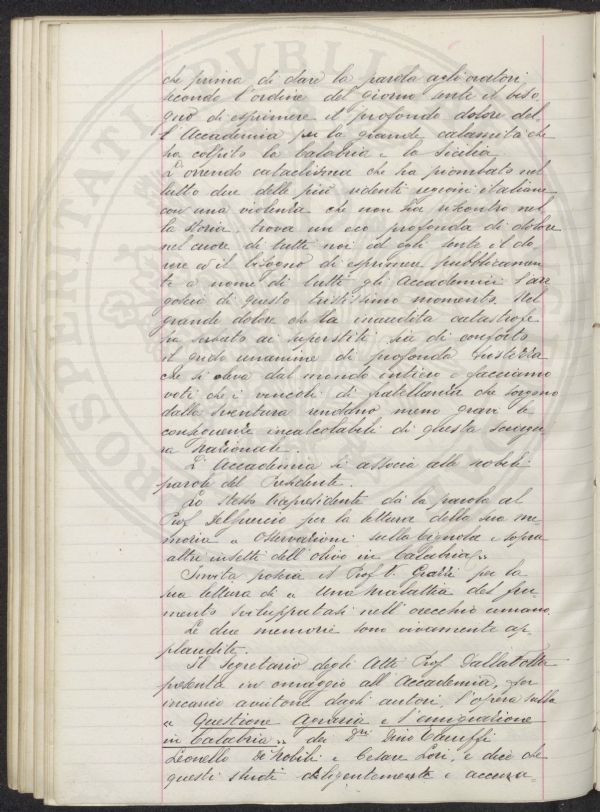 che prima di dare la parola agli oratori
secondo l'ordine del giorno sente il biso
gno di esprimere il profondo dolore del
l'Accademia per la grande calamità che
ha colpito la Calabria e la Sicilia
L'orrendo cataclisma che ha piombato nel
lutto due delle più ridenti regioni italiane
con una violenza che non ha riscontro nel
la storia trova un eco profonda di dolore
nel cuore di tutti noi ed egli sente il do
vere ed il bisogno di esprimere pubblicamen
te a nome di tutti gli Accademici l'an
goscia di questo tristissimo momento. Nel
grande dolore che la inaudita catastrofe
ha serbato ai superstiti sia di conforto
il grido unanime di profonda
che si eleva dal mondo intiero e facciamo
voti che i vincoli di fratellanza che sorgono
dalla sventura rendano meno gravi le
conseguenze incalcolabili di questa sciagu
ra nazionale.
L'Accademia si associa alle nobili
parole del Presidente.
Lo stesso dà la parola al
Prof. Del Guercio per la lettura della sua me
moria "Osservazioni sulla Tignola e sopra
altri insetti dell'olivo in Calabria".
Invita poscia il Prof. V. per la
sua lettura di "Una malattia del fru
mento sviluppatasi nell'orecchio umano.
Le due memorie sono vivamente ap
plaudite.
Il Segretario degli Atti Prof. Dalla Volta
presenta in omaggio all'Accademia, per
incarico avutone dagli autori, l'opera sulla
"Questione Agraria e l'emigrazione
in Calabria" dei Dri Dino Taruffi
Leonello De Nobili e Cesare Lori, e dice che
questi studi diligentemente e accura-